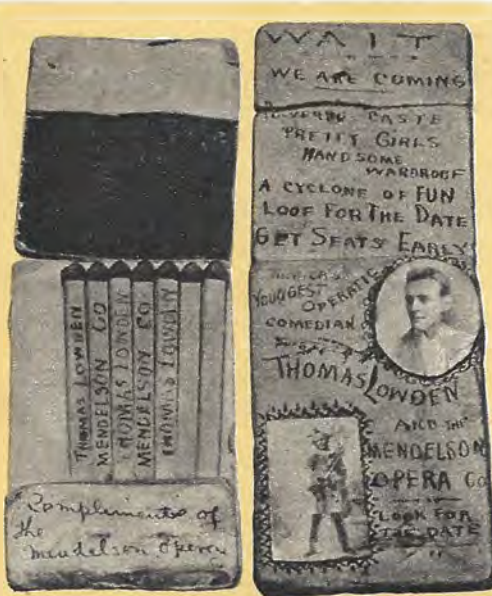 THOMAS LOWDEN
MENDELSON CO
THOMAS LOWDEN
MENDELSON CO
THOMAS LOWDEN
Compliments of
the
mendelson opera
WAIT
WE ARE COMING
CASTE
PRETTY GIRLS
HANDSOME
WARDROBE
A CYCLONE OF FUN
LOOF FOR THE DATE
GET SEATS EARLY
YOUNGEST
OPERATIC
COMEDIAN
THOMAS LOWDEN
AND THE
MENDELSON
OPERA CO
LOOK FOR
THE DATE